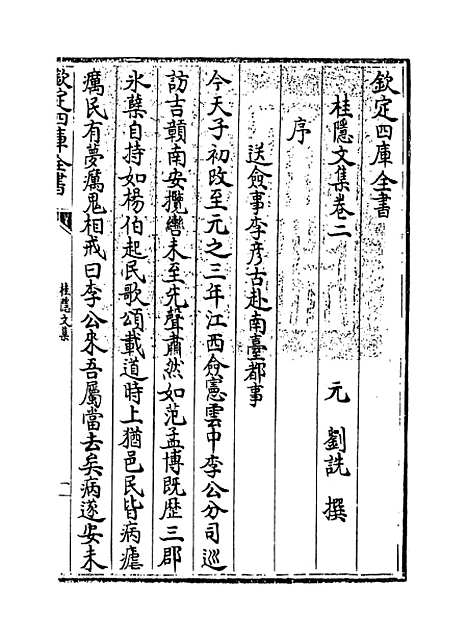 欽定四庫全書
桂隱文集卷二
元 劉詵 撰
序
送僉事李彦古赴南臺都事
今天子初改至元之三年江西僉憲雲中李公分司巡
訪吉贛南安攬轡未至先聲肅然如范孟博既歴三郡
氷蘖自持如楊伯起民歌頌載道時上猶邑民皆病瘧
癘民有夢癘鬼相戒曰李公來吾屬當去矣病遂安未
欽定四庫全書
桂隱文集